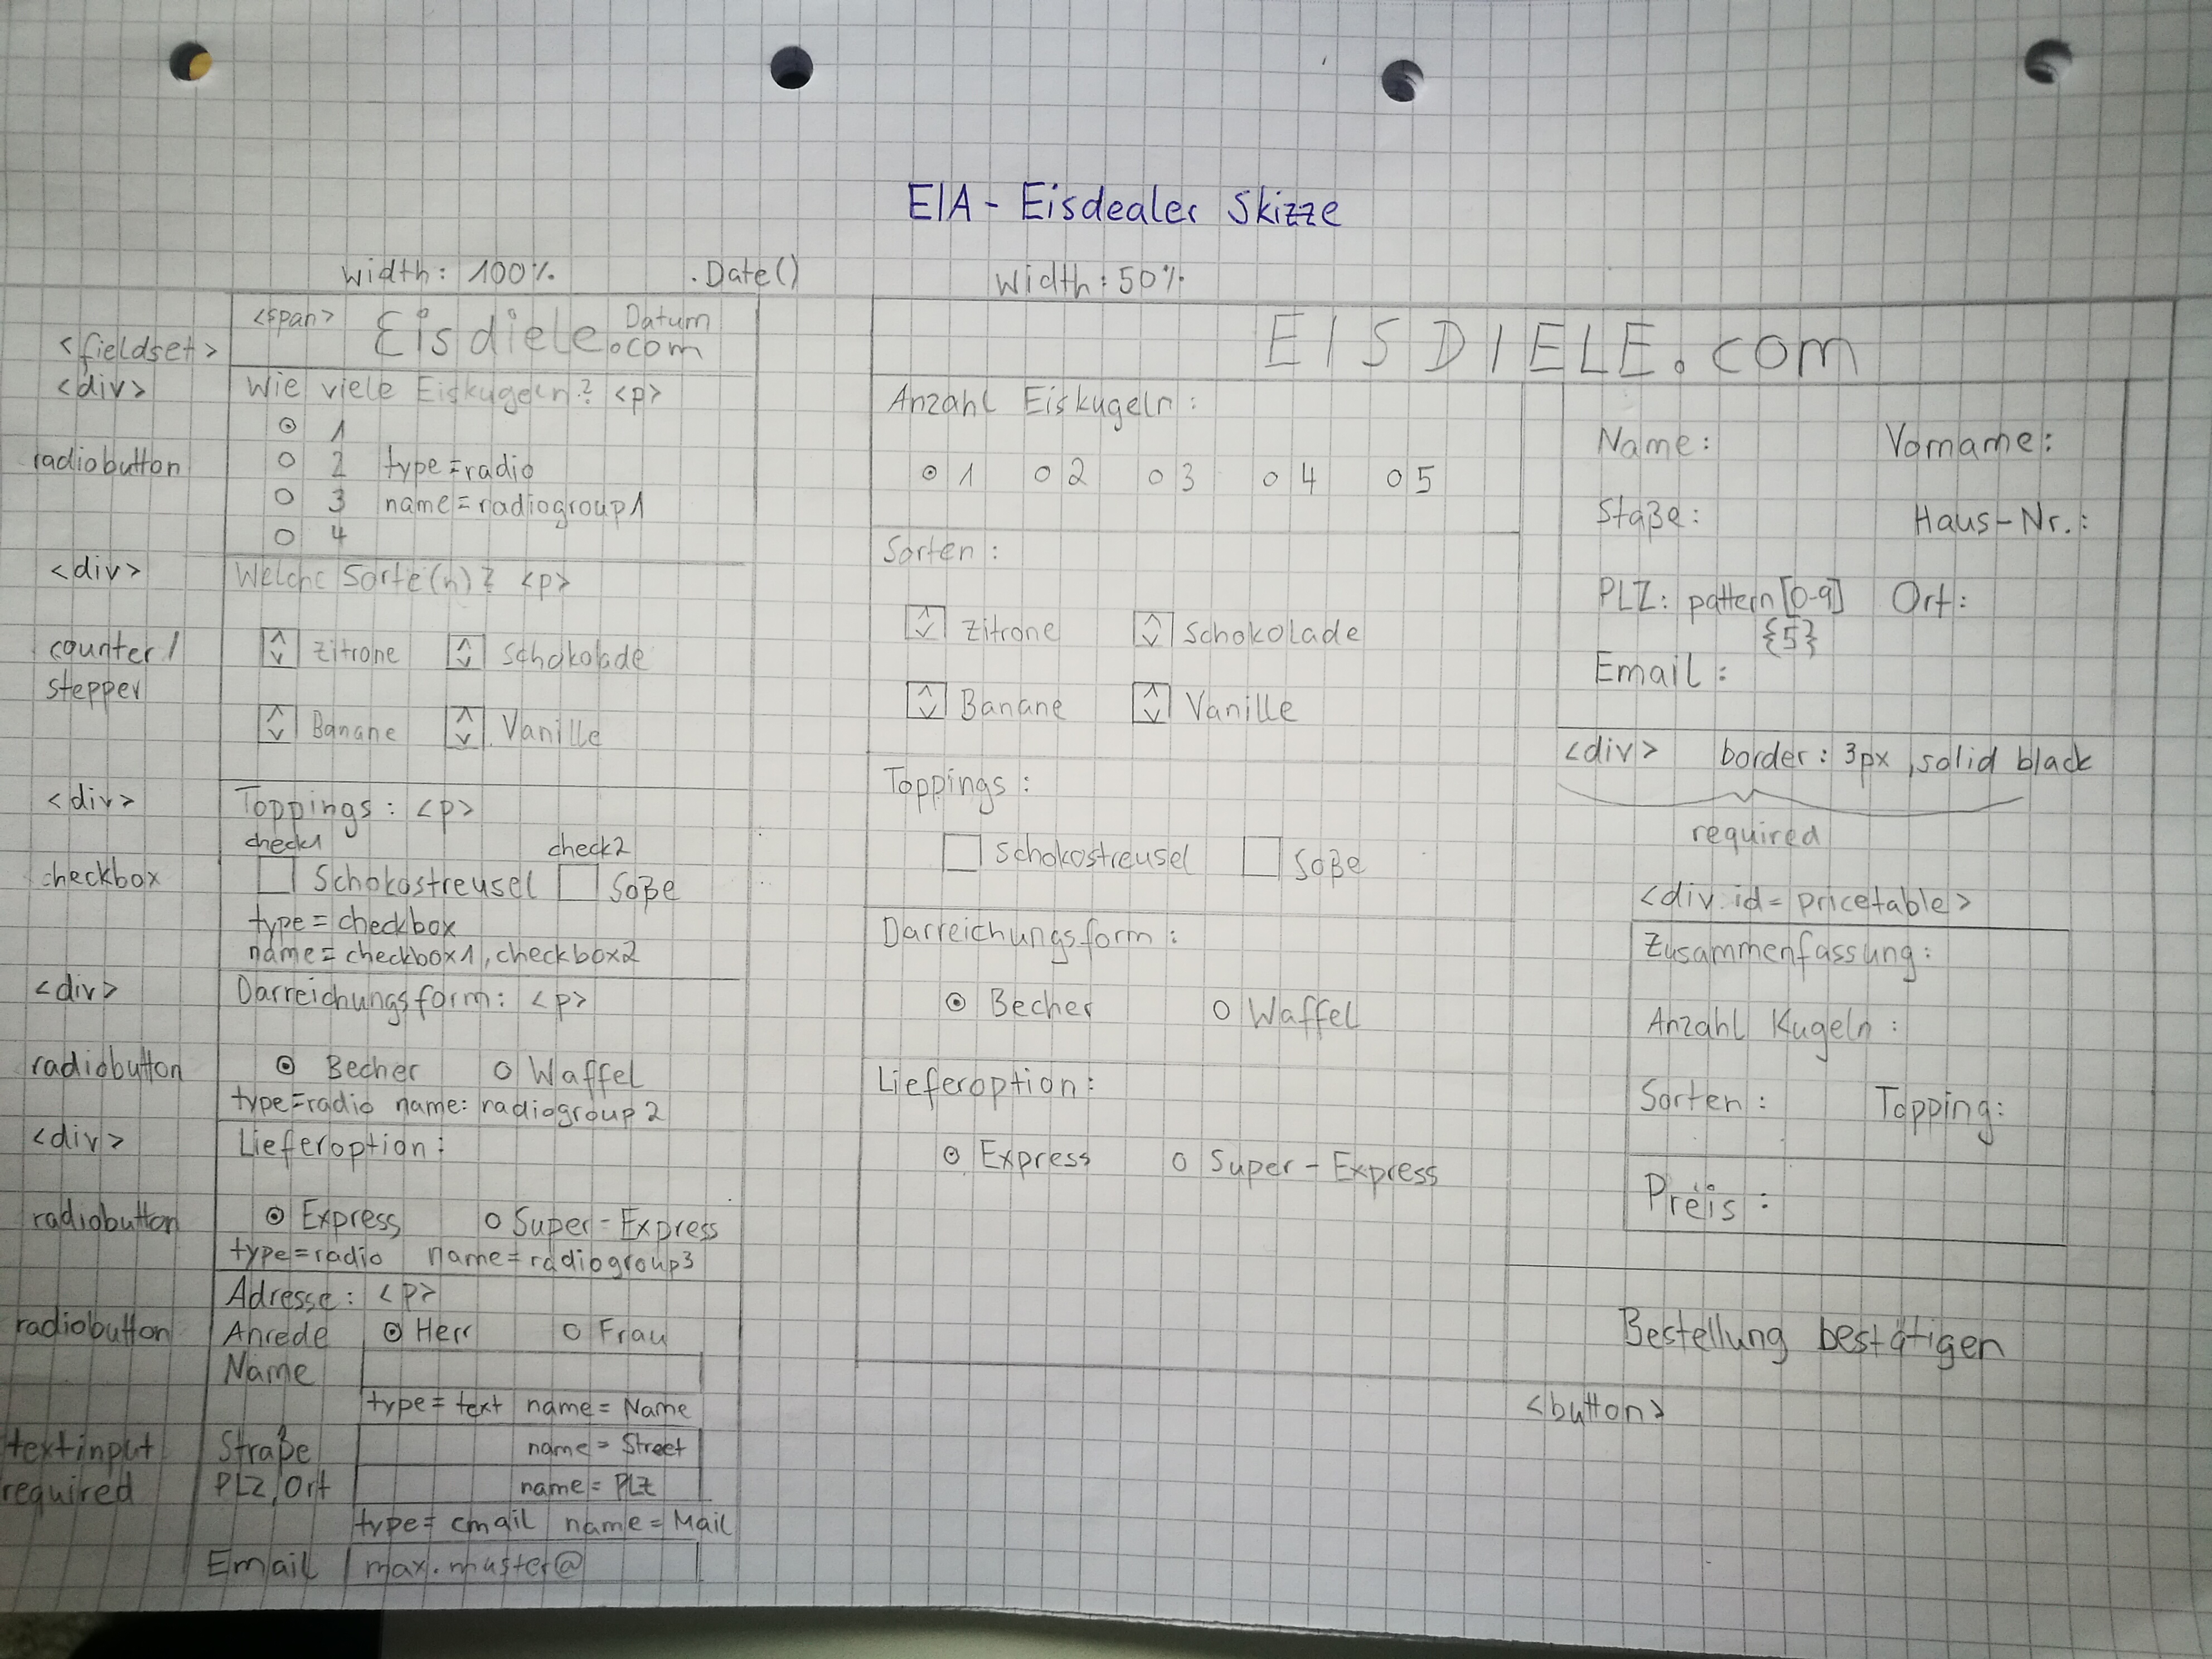 EIA - Eisdealer Skizze
width: 100%
.Date()
<fieldset>
<span>
Eisdiele.com
Datum
<div>
Wie viele Eiskugeln? <p>
radiobutton
1
2 type=radio
3 name=radiogroup1
4
<div>
Welche Sorte(n)? <p>
counter/
stepper
Zitrone Schokolade
Banane Vanille
<div>
Toppings: <p>
check1 check2
checkbox
Schokostreusel Soße
type=checkbox
name=checkbox1, checkbox2
<div>
Darreichungsform: <p>
radiobutton
Becher Waffel
type=radio name: radiogroup2
<div>
Lieferoption:
radiobutton
Express Super-Express
type=radio name=radiogroup3
Adresse: <p>
radiobutton
Anrede Herr Frau
Name
type=text name=Name
textinput
required
Straße name=Street
PLZ, Ort name=PLZ
type=email name=Mail
Email max.muster@
Width: 50%
EISDIELE.com
Anzahl Eiskugeln:
1 2 3 4 5
Sorten:
Zitrone Schokolade
Banane Vanille
Toppings:
Schokostreusel Soße
Darreichungsform:
Becher Waffel
Lieferoption:
Express Super-Express
Name: Vorname:
Staße: Haus-Nr.:
PLZ: pattern[0-9] Ort:
{5}
Email:
<div> border: 3px, solid black
required
<div id=pricetable>
Zusammenfassung:
Anzahl Kugeln:
Sorten: Topping:
Preis:
Bestellung bestätigen
<button>